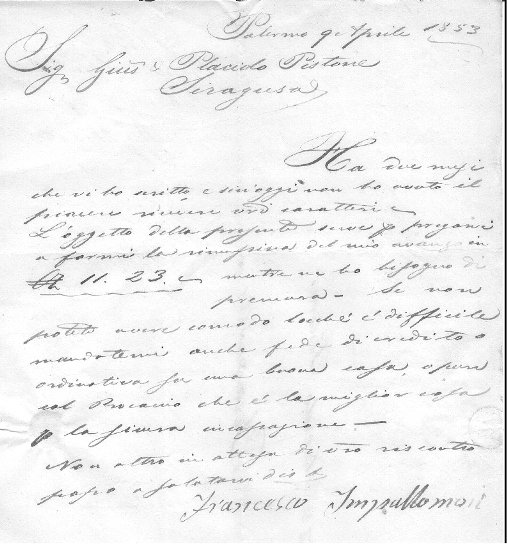 Palermo 9 Aprile 1853
Sig. Gius & Placido Pistone
Siragusa
Ha due mesi
che vi ho scritto e sin'oggi non ho avuto il
piacere ricevere vri caratteri
L'oggetto della presente serve p pregarvi
a farmi la rimessa del mio avanzo in
11. 23. mentre ne ho bisogno di
premura - Se non
potete avere comodo locché è difficile
mandatemi anche fede di credito o
ordinativa su una buona casa, opure
col Procaccio che è la miglior cosa
p la sicura
Non altro in attesa di vro riscontro
passo a salutarvi
Francesco Impallomeni